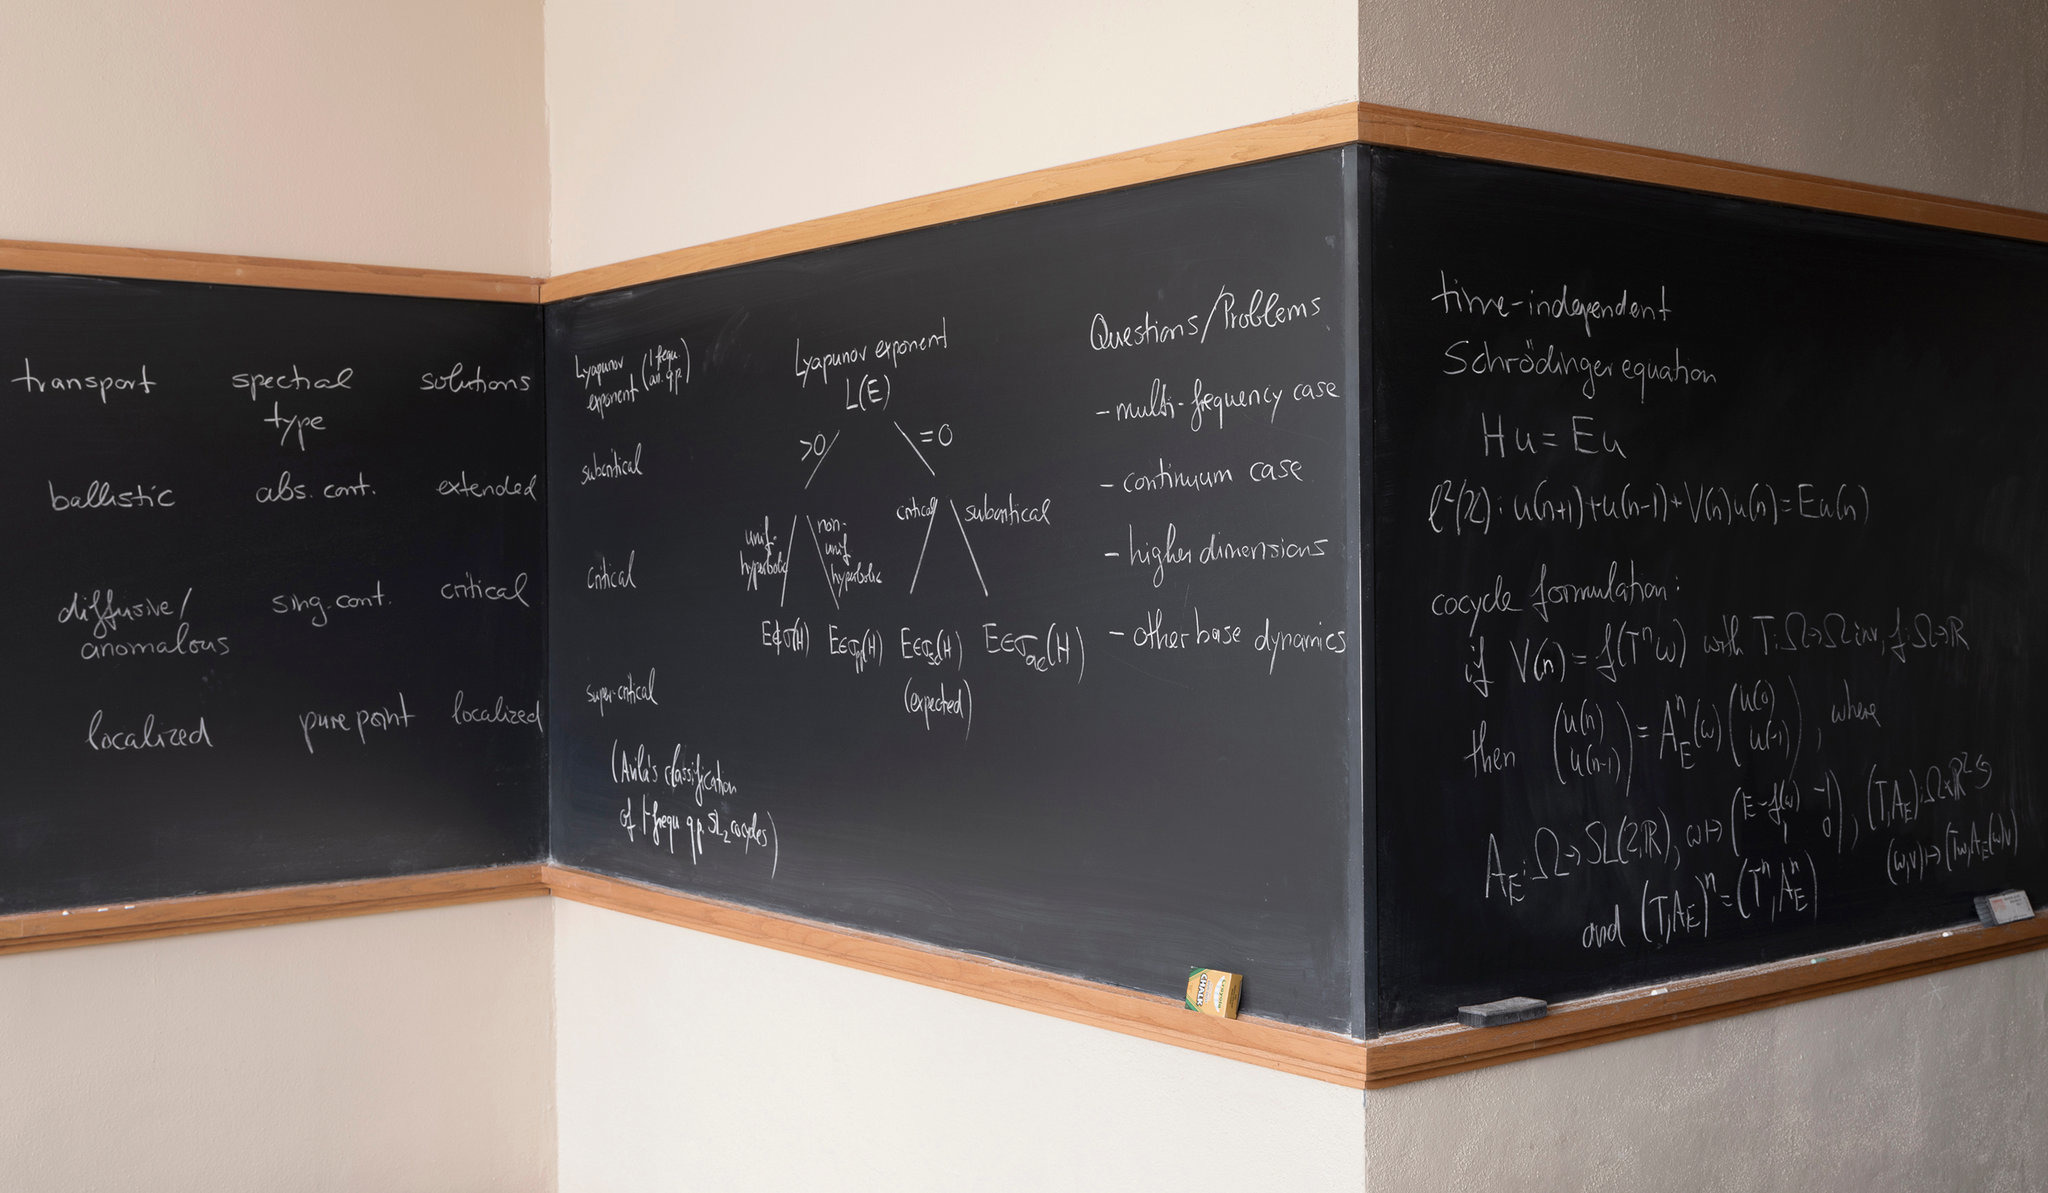 transport spectral type solutions
ballistic abs. cont. extended
diffusive/anomalous sing. cont. critical
localized pure point localized
Lyapunov exponent (1 frequ. an. q.p.)
subcritical
critical
super-critical
(Avila's classification
of 1-frequ q.p. SL₂ cocycles)
Lyapunov exponent
L(E)
>0 =0
unif. hyperbolic
non-unif hyperbolic
critical
subcritical
E∉σ(H) E∈σpp(H) E∈σsc(H) E∈σac(H)
(expected)
Questions/Problems
- multi-frequency case
- continuum case
- higher dimensions
- other base dynamics
time-independent
Schrödinger equation
Hu = Eu
ℓ²(ℤ): u(n+1)+u(n-1)+V(n)u(n)=Eu(n)
cocycle formulation:
if V(n) = f(Tⁿω) with T:Ω→Ω inv, f:Ω→ℝ
then (u(n) u(n-1)) = A_E^n(ω) (u(0) u(-1)), where
A_E:Ω→SL(2,ℝ), ω↦(E-f(ω) -1 1 0), (T,A_E):Ω×ℝ²↺
(ω,v)↦(Tω,A_E(ω)v)
and (T,A_E)ⁿ=(Tⁿ,A_E^n)
CHALK